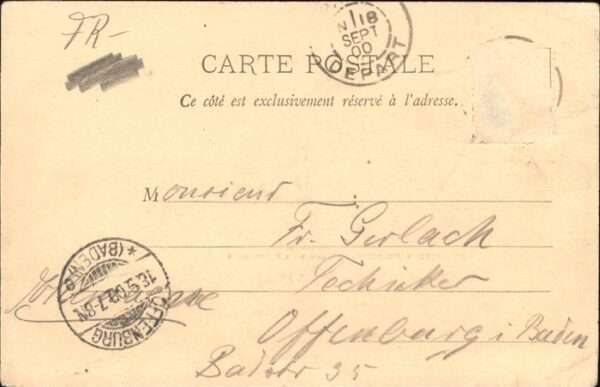 FR-
18
SEPT
00
DEPART
CARTE POSTALE
Ce côté est exclusivement réservé à l'adresse.
Monsieur
Fr. Gerlach
Techniker
Offenburg i Baden
Badstr 35
OFFENBURG
* (BADEN)